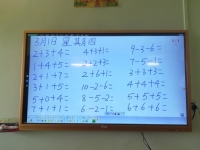 3月1日 星期四
2+3+4= 4+3+1= 9-3-6=
1+4+5= 2+2+3= 7-5-1=
2+1+7= 2+6+1= 3+3+3=
3+1+5= 10-2-6= 4+4+4=
5+0+4= 8-5-2= 5+5+5=
7+1+1= 6-2-1= 6+6+6=